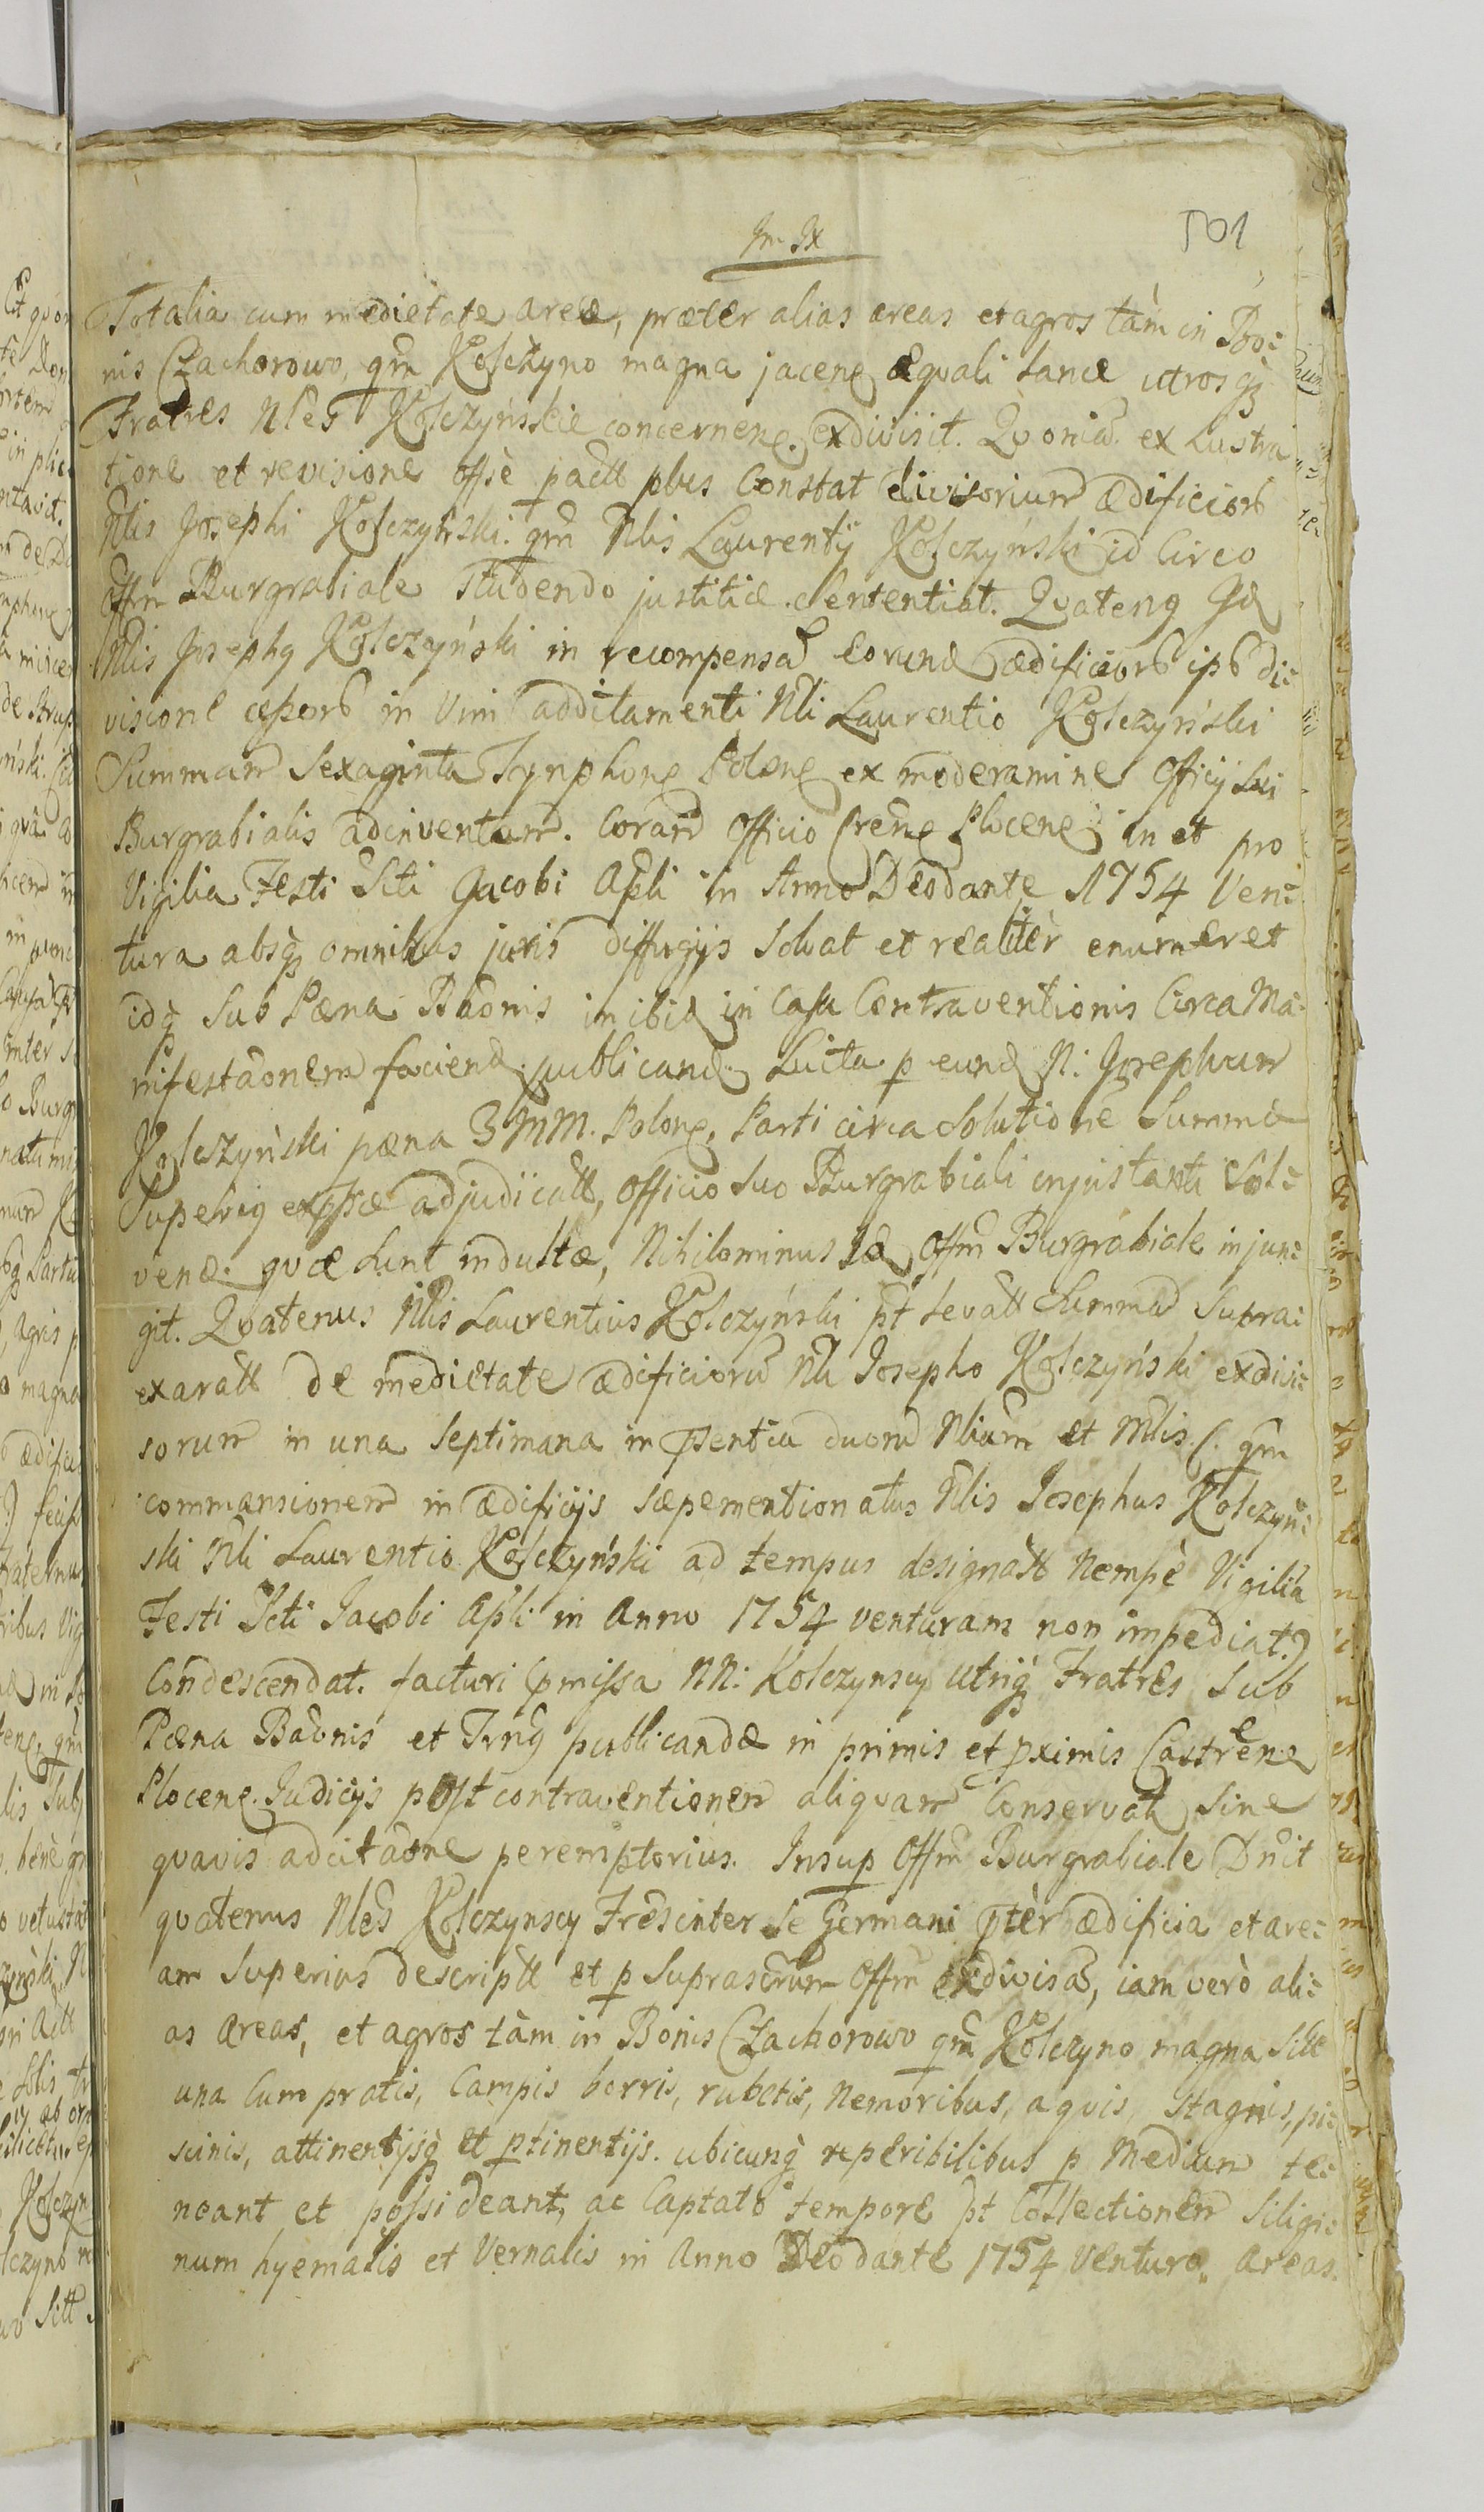 501
Totalia cum medietate areæ, præter alias areas et agros tàm in Bo:
nis Czachorowo, qm̃ Kolczyno magna jaceñ æquali lance utrosq̃
Fratres Nles Kolczyńskie concerneñ. exdivisit. Qvoniã ex Lustra
tione et revisione offsè pactt plus Constat divisorium ædificiorũ
Nlis Josephi Kolczyński. qm̃ Nlis Laurentÿ Kolczyński id Circo
Offm Burgrabiale studendo justitiæ. Sententiat. Qvatenq Gd
Nlis Josephq Kolczyński in recompensã eorund ædificiorũ ipsõ di:
visione in Vim additamenti Nli Laurentio Kolczyński
Summam Sexaginta Tynphoñ Poloñ ex moderamine Officij Sui
Burgrabialis adinventam. Coram Officio Creñ Ploceñ in et pro
Vigilia Festi Scti Jacobi Apli in Anno Deodante 1754 Ven:
tura absq̃ omnibus juris diffugijs Solvat et realitèr enumeret
idq̃ Sub Pæna Baõnis inibid in Casu Contraventionis Circa Ma:
nifestaõnem faciend publicand. Luita p eund N: Josephum
Kolczyński pæna 3 MM. Poloñ, Parti circa Solutione Summæ
Superiq exppsæ adjudicatt, Officio Suo Burgrabiali in instanti Sol:
vend. qvæ Sunt indultæ, Nihilominus Id Offm Burgrabiale injun:
git. Qvatenus Nlis Laurentius Kolczyński pt levatt Summã Supra:
exaratt de medietate ædificiorũ Nli Josepho Kolczyński exdivi:
sorum in una Septimana in Psentia duorũ Nlium et Mlis (. qm̃
commansionem in ædificijs sæpementionatus Nlis Josephus Kolczyń:
ski Nli Laurentio Kolczyński ad tempus designatt Nempè Vigilia
Festi Scti Jacobi Apli in Anno 1754 venturam non impediat.)
Condescendat. facturi pmissa NN: Kolczynscy utriq̃ Fratres Sub
Pæna Baõnis et publicandæ in primis et pximis Castreñe
Ploceñ. Judicijs post contraventionem aliqvam Conservatt Sine
qvavis adcitaõne peremptorius. Insup Offm Burgrabiale Dnit
qvatenus Nles Kolczynscy Fres inter Se Germani ptèr ædificia et are:
am Superius descriptt et p Suprascrum Offm exdivisã, iam verò ali:
as areas, et agros tàm in Bonis Czachorowo qm̃ Kolczyno magna Sitt
una Cum pratis, Campis borris, rubetis, Nemoribus, aqvis, Stagnis, pi:
scinis, attinentijsq̃ et ptinentijs. ubicunq̃ reperibilibus p Medium te:
neant et possideant, ac Captato tempore pt Collectionem Siligi:
num hyemalis et Vernalis in Anno Deodante 1754 Venturo areas.